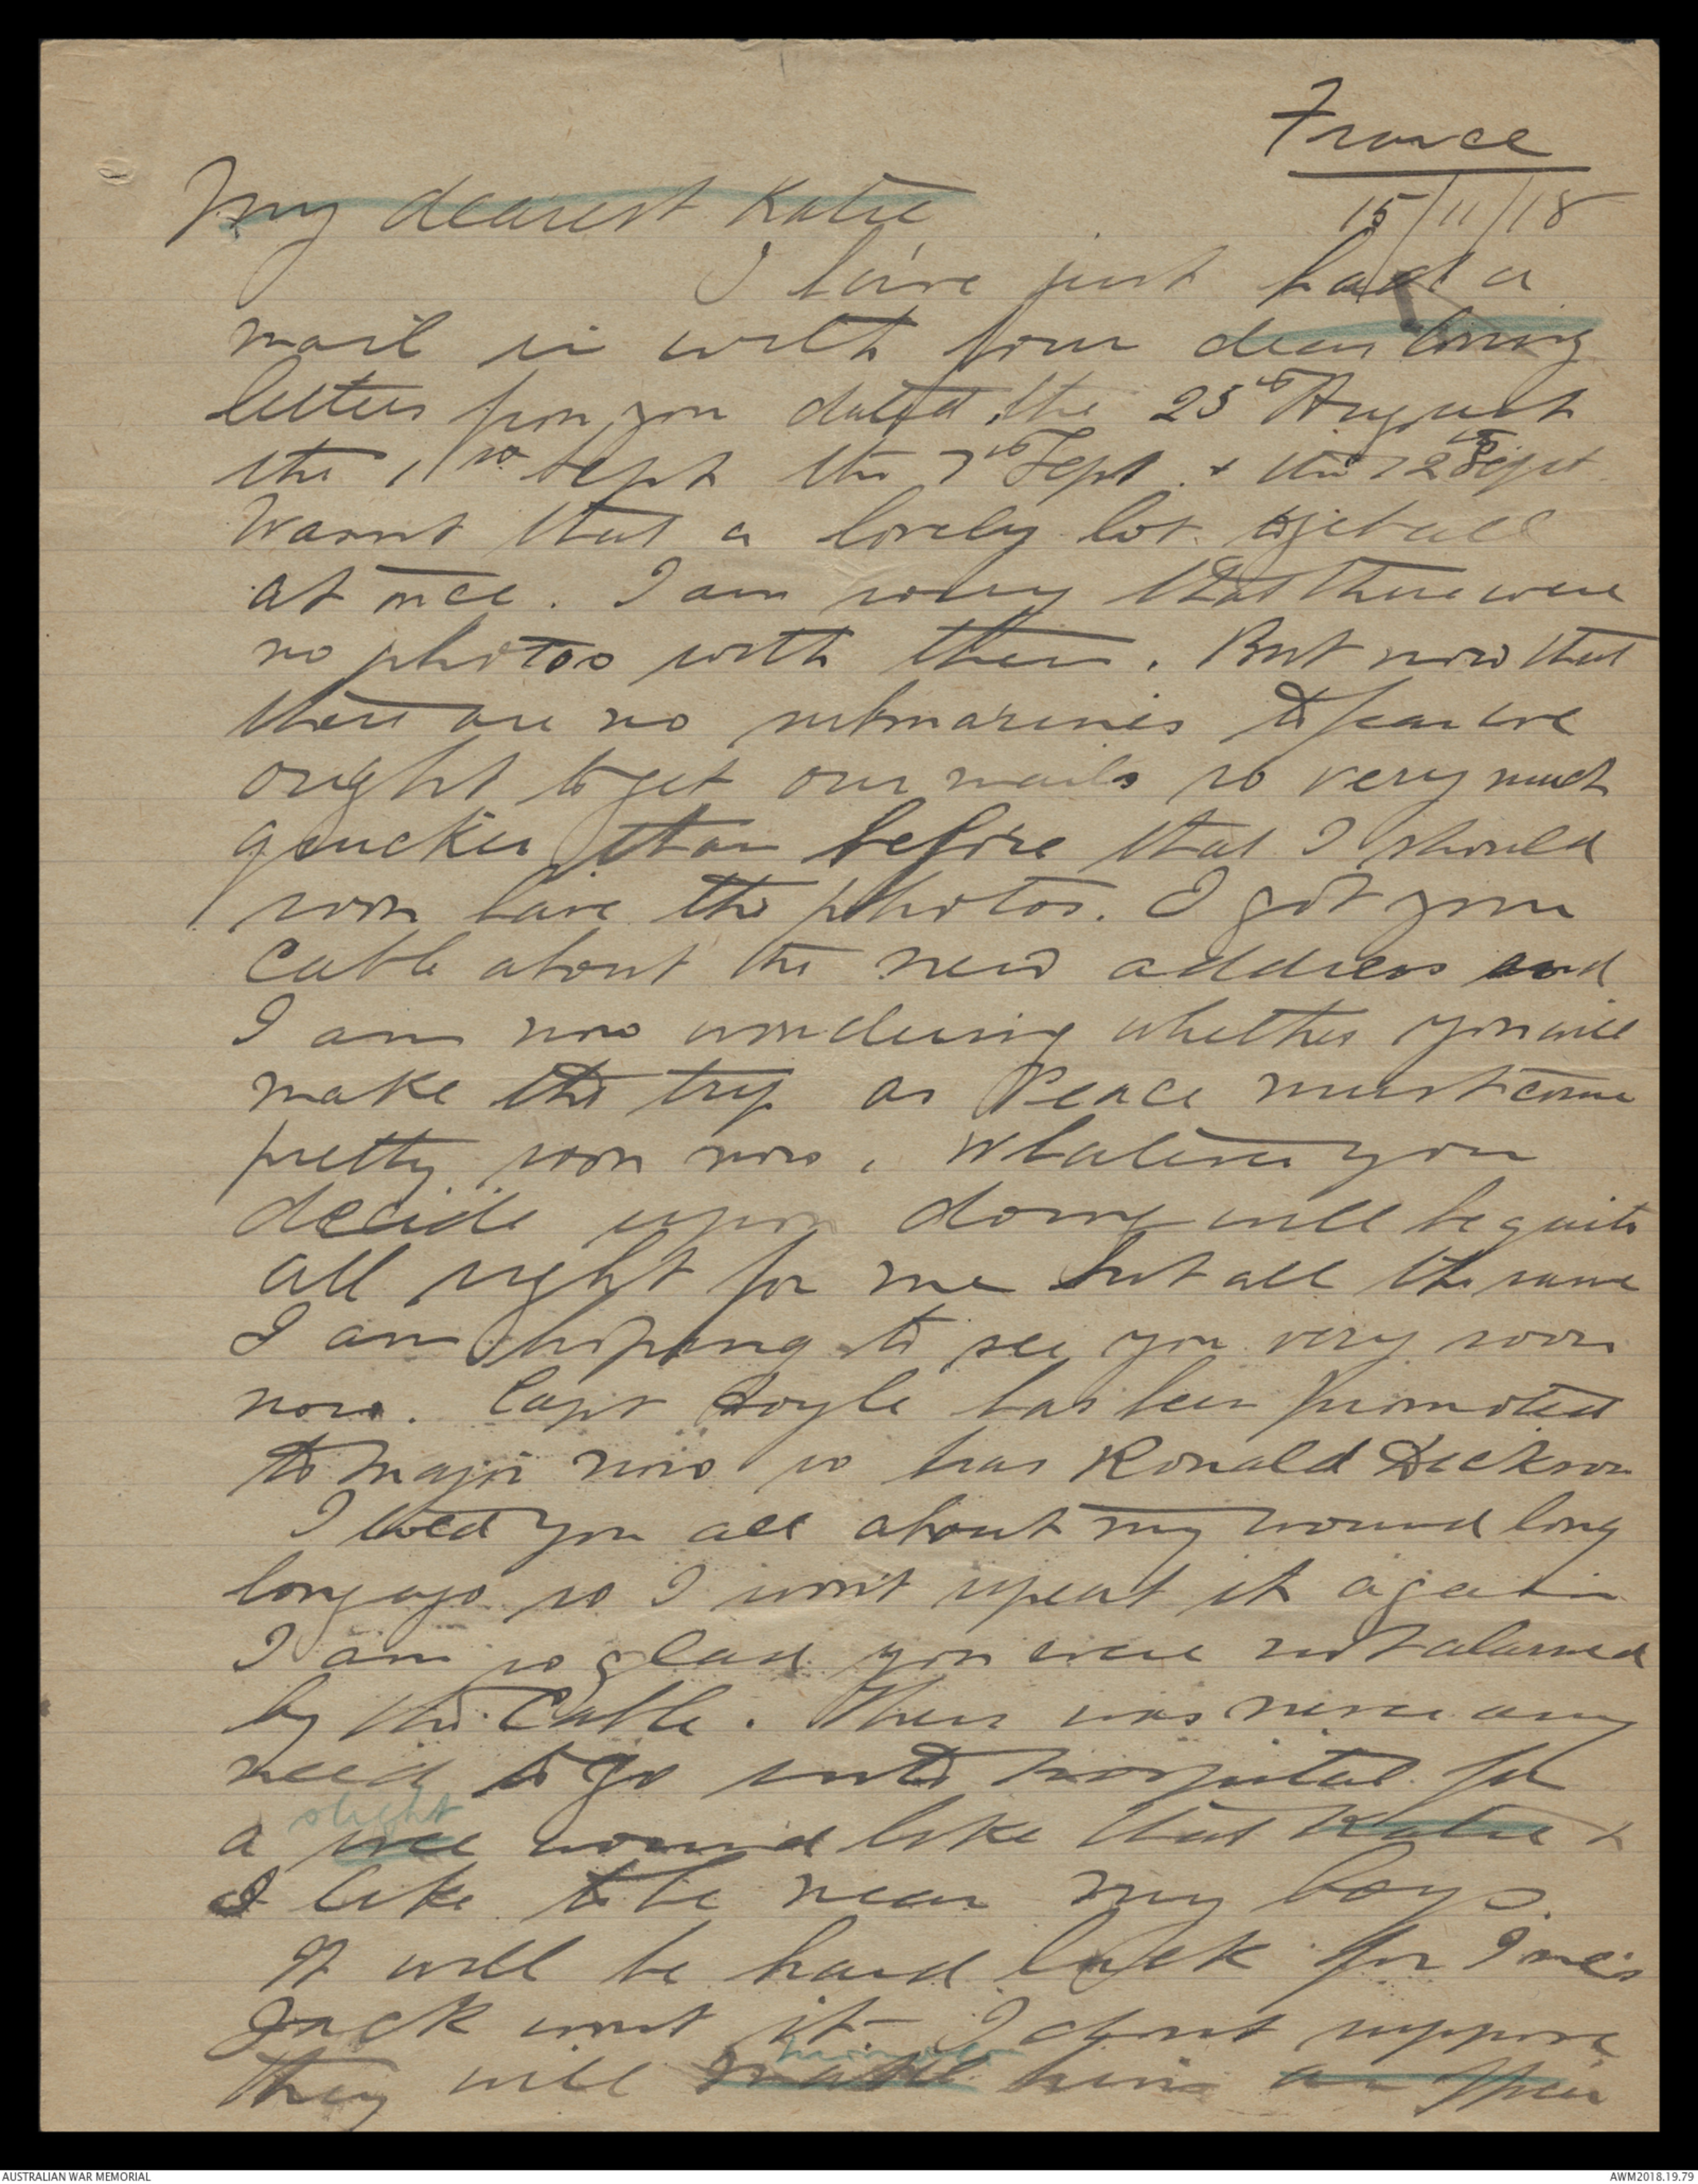 France
15/11/18
My dearest Katie
I have just had a
mail in with four dear loving
letters from you dated the 25th August
the 1st Sept the 7th Sept & the 12th Sept
Wasnt that a lovely lot to get all
at once. I am sorry that there were
no photos with them. But now that
there are no submarines to fear we
ought to get our mails so very much
quicker than before that I should
soon have the photos. I got your
Cable about the new address and
I am now wondering whether you will
make the trip as Peace must come
pretty soon now. Whatever you
decide upon doing will be quite
all right for me but all the same
I am hoping to see you very soon
now. Capt Hoyle has been promoted
to Major now so has Ronald Dickson
I told you all about my wound long
long ago so I won't repeat it again
I am so glad you were not alarmed
by the Cable. There was never any
need to go into hospital for
slight
a wee wound like that Katie &
I like to be near my boys.
It will be hard luck for
Jack wont it. I dont suppose
they will make him an